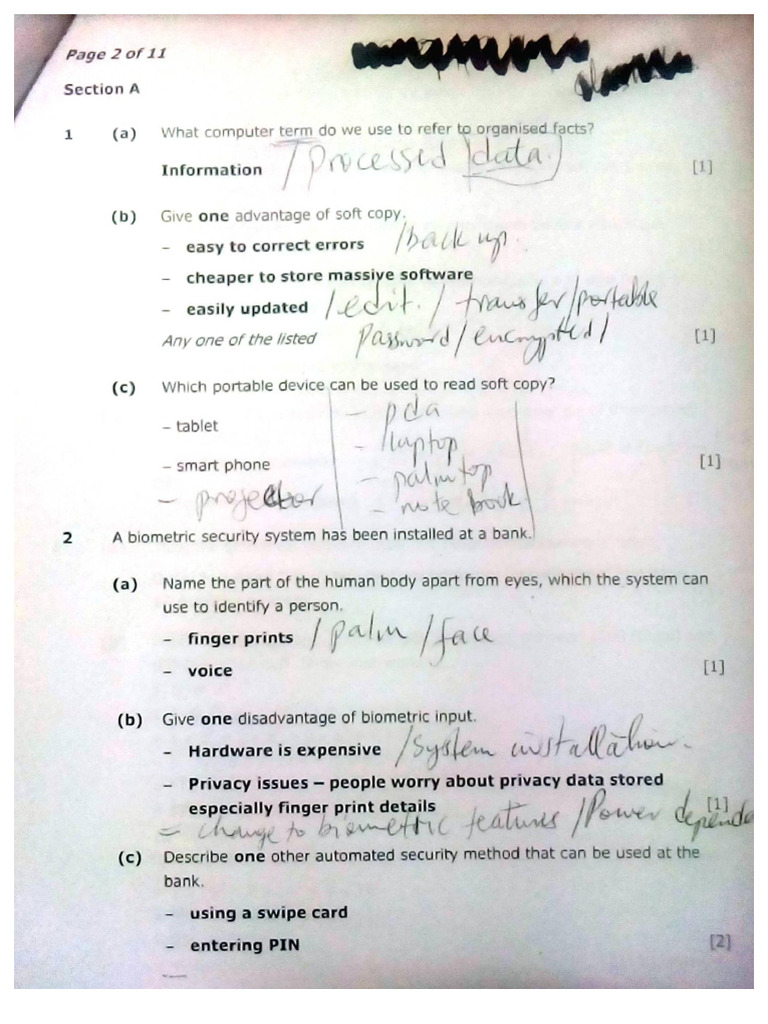 Page 2 of 11
Section A
1 (a) What computer term do we use to refer to organised facts?
Information / Processed data. [1]
(b) Give one advantage of soft copy.
– easy to correct errors /back up.
– cheaper to store massive software
– easily updated /edit. / transfer/portable
Any one of the listed Password/encrypted/ [1]
(c) Which portable device can be used to read soft copy?
– pda
– tablet
– laptop
– smart phone [1]
– palm top
– projector – note book
2 A biometric security system has been installed at a bank.
(a) Name the part of the human body apart from eyes, which the system can
use to identify a person.
– finger prints / palm / face
– voice [1]
(b) Give one disadvantage of biometric input.
– Hardware is expensive /System installation.
– Privacy issues – people worry about privacy data stored
especially finger print details [1]
– change to biometric features /Power depende
(c) Describe one other automated security method that can be used at the
bank.
– using a swipe card
– entering PIN [2]